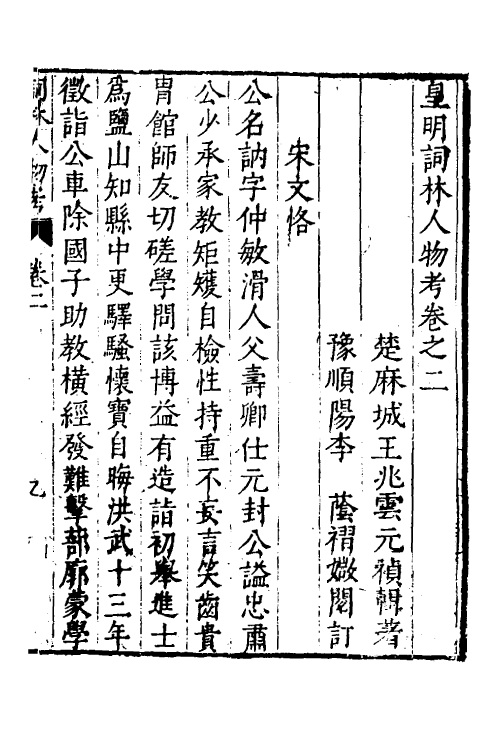 皇明詞林人物考卷之二
楚麻城王兆雲元禎輯著
豫順陽李　蔭襘嫩閱訂
宋文恪
公名訥字仲敏滑人父壽卿仕元封公謚忠肅
公少承家教矩矱自檢性持重不妄言笑齒貴
胄館師友切磋學問該博益有造詣初舉進士
為鹽山知縣中更驛騷懷寶自晦洪武十三年
徵詣公車除國子助教橫經發難擊部廓蒙學
詞林人物考
卷二
乙